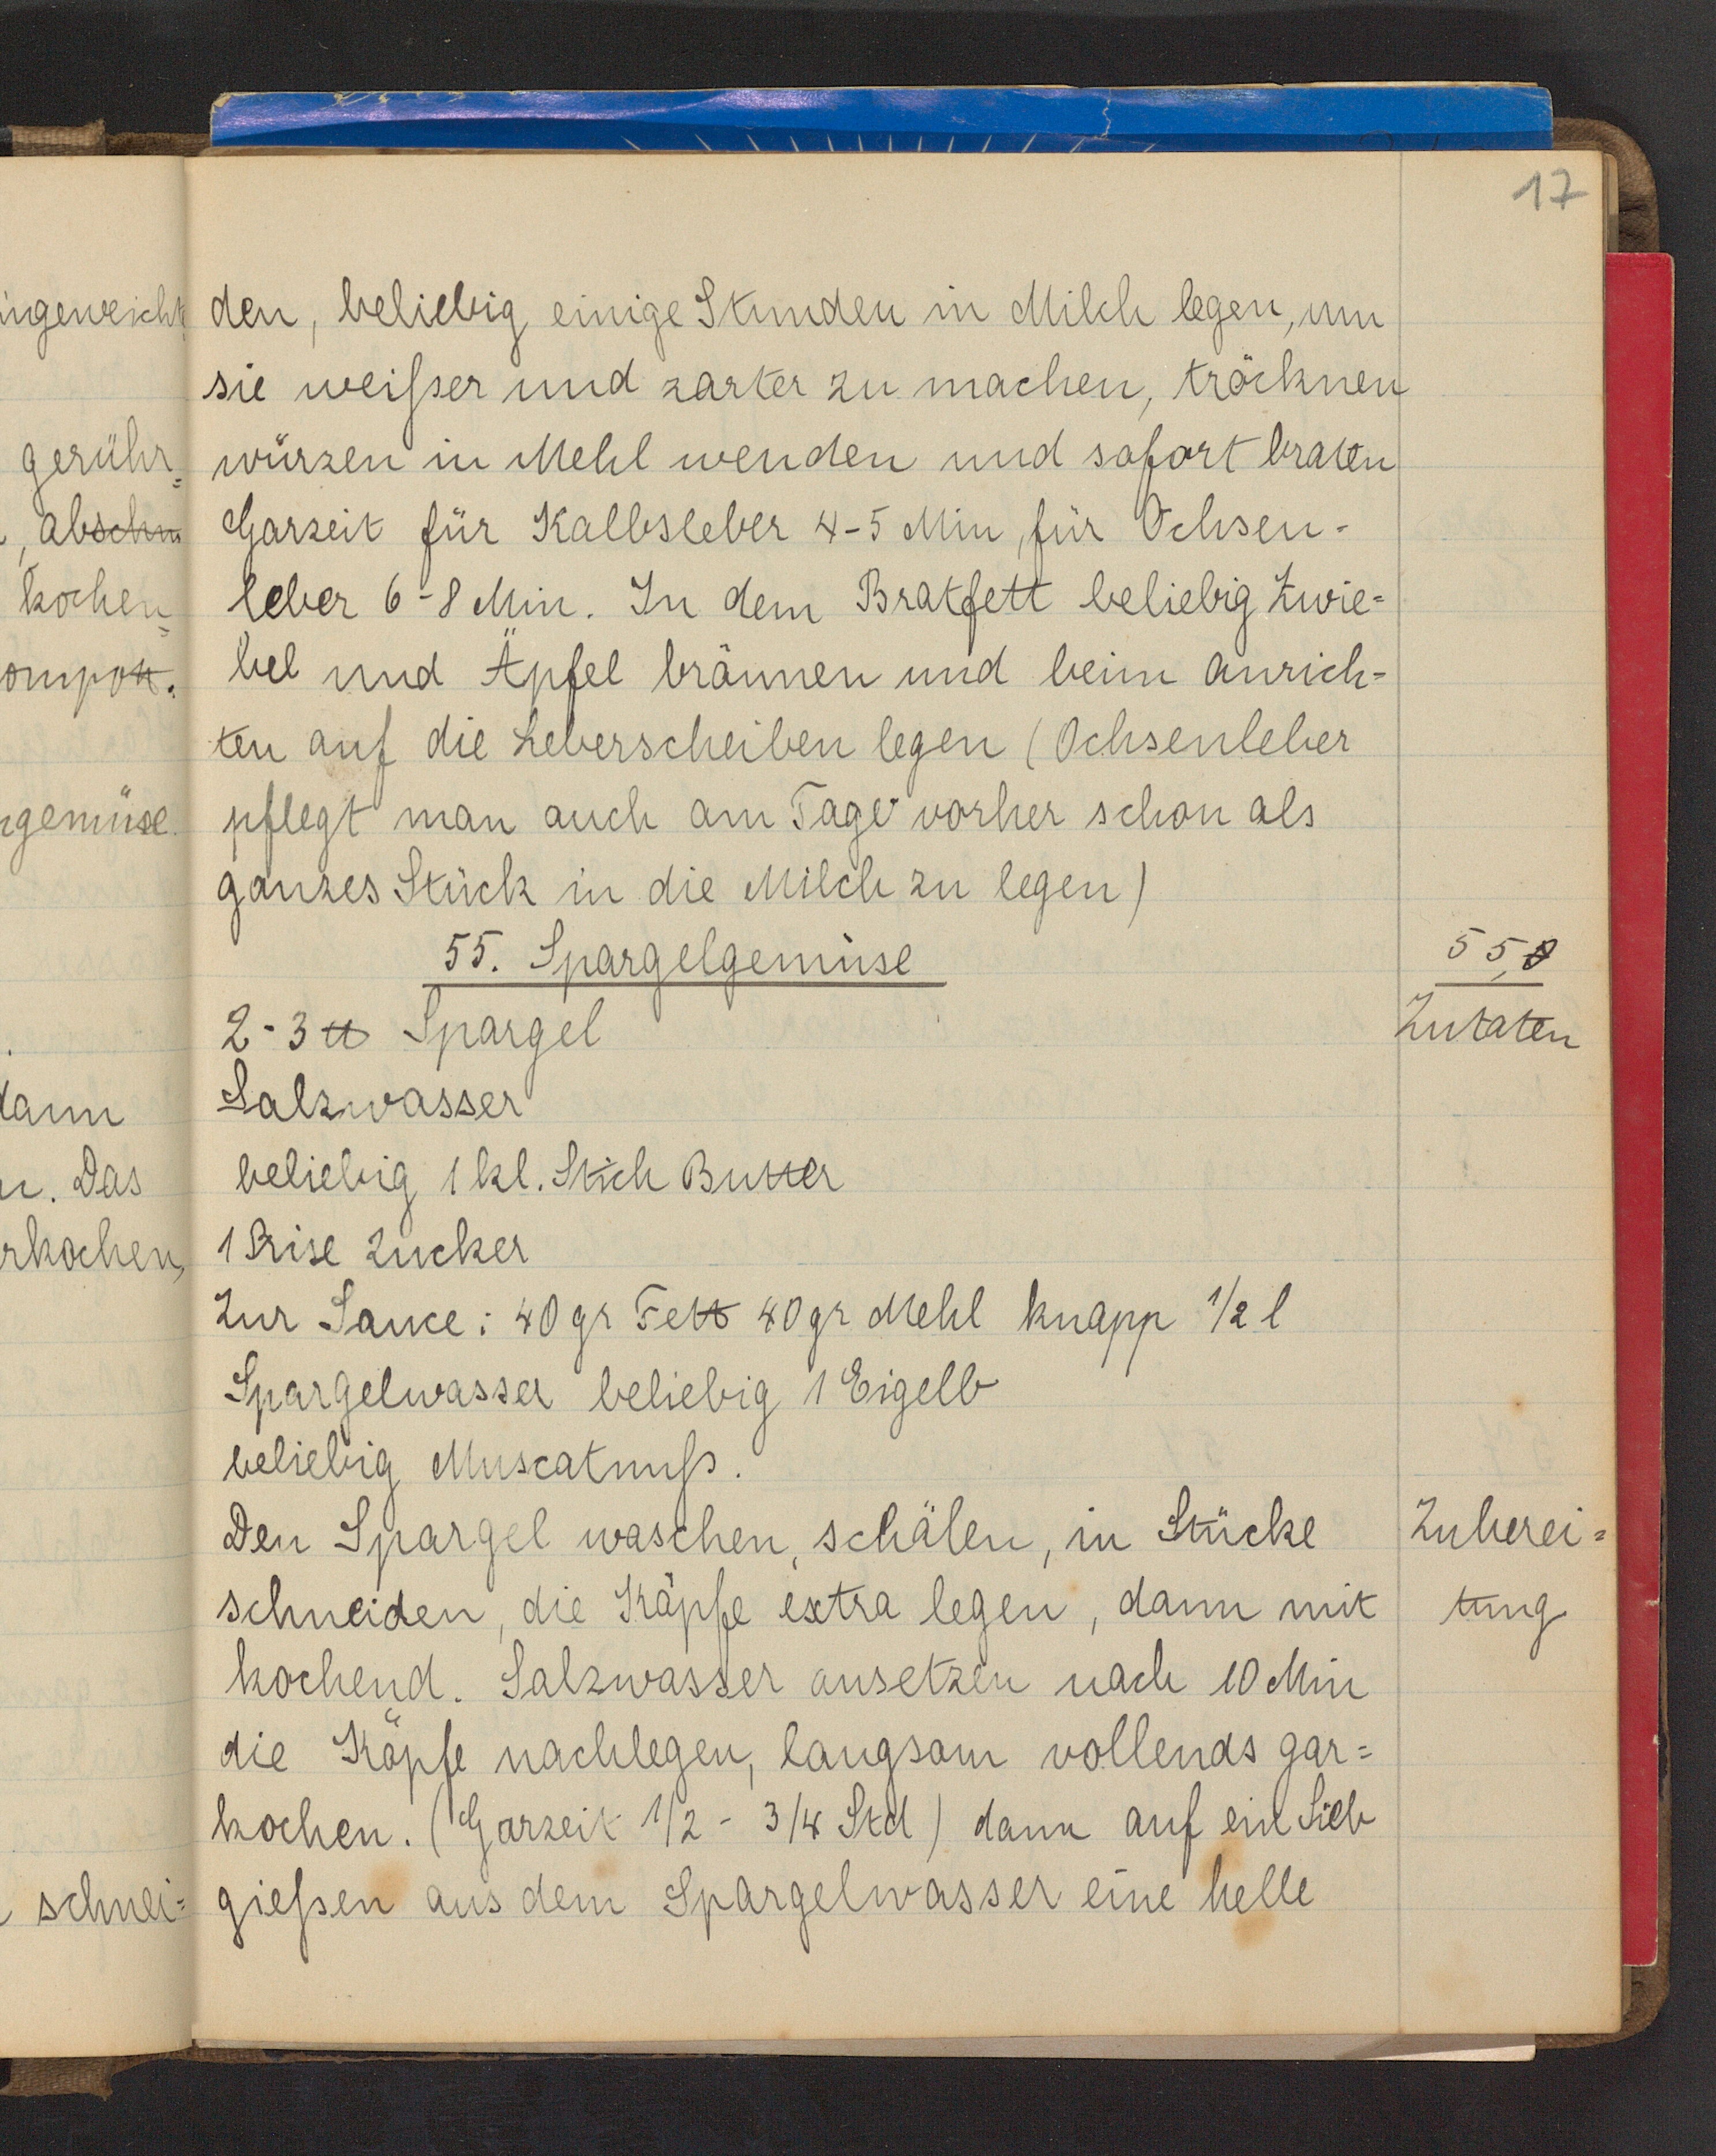 17
ingeweicht
gerühr=
, abschn
kochen=
ompott.
gemüse.
dann
n. Das
rkochen,
schnei=
den, beliebig einige Stunden in Milch legen, um
sie weißer und zarter zu machen, tröcknen
würzen in Mehl wenden und sofort braten
Garzeit für Kalbsleber 4-5 Min, für Ochsen-
leber 6-8 Min. In dem Bratfett beliebig Zwie=
bel und Äpfel bräunen und beim anrich=
ten auf die Leberscheiben legen (Ochsenleber
pflegt man auch am Tage vorher schon als
ganzes Stück in die Milch zu legen)
55. Spargelgemüse
55,
2-3 ℔ Spargel
Zutaten
Salzwasser
beliebig 1 kl. Stich Butter
1 Prise Zucker
Zur Sauce: 40 gr Fett 40 gr Mehl knapp 1/2 l
Spargelwasser beliebig 1 Eigelb
beliebig Muscatnuß.
Den Spargel waschen, schälen, in Stücke
Zuberei=
schneiden, die Köpfe extra legen, dann mit
tung
kochend. Salzwasser ansetzen nach 10 Min
die Köpfe nachlegen, langsam vollends gar=
kochen. (Garzeit 1/2 - 3/4 Std) dann auf ein Sieb
gießen aus dem Spargelwasser eine helle